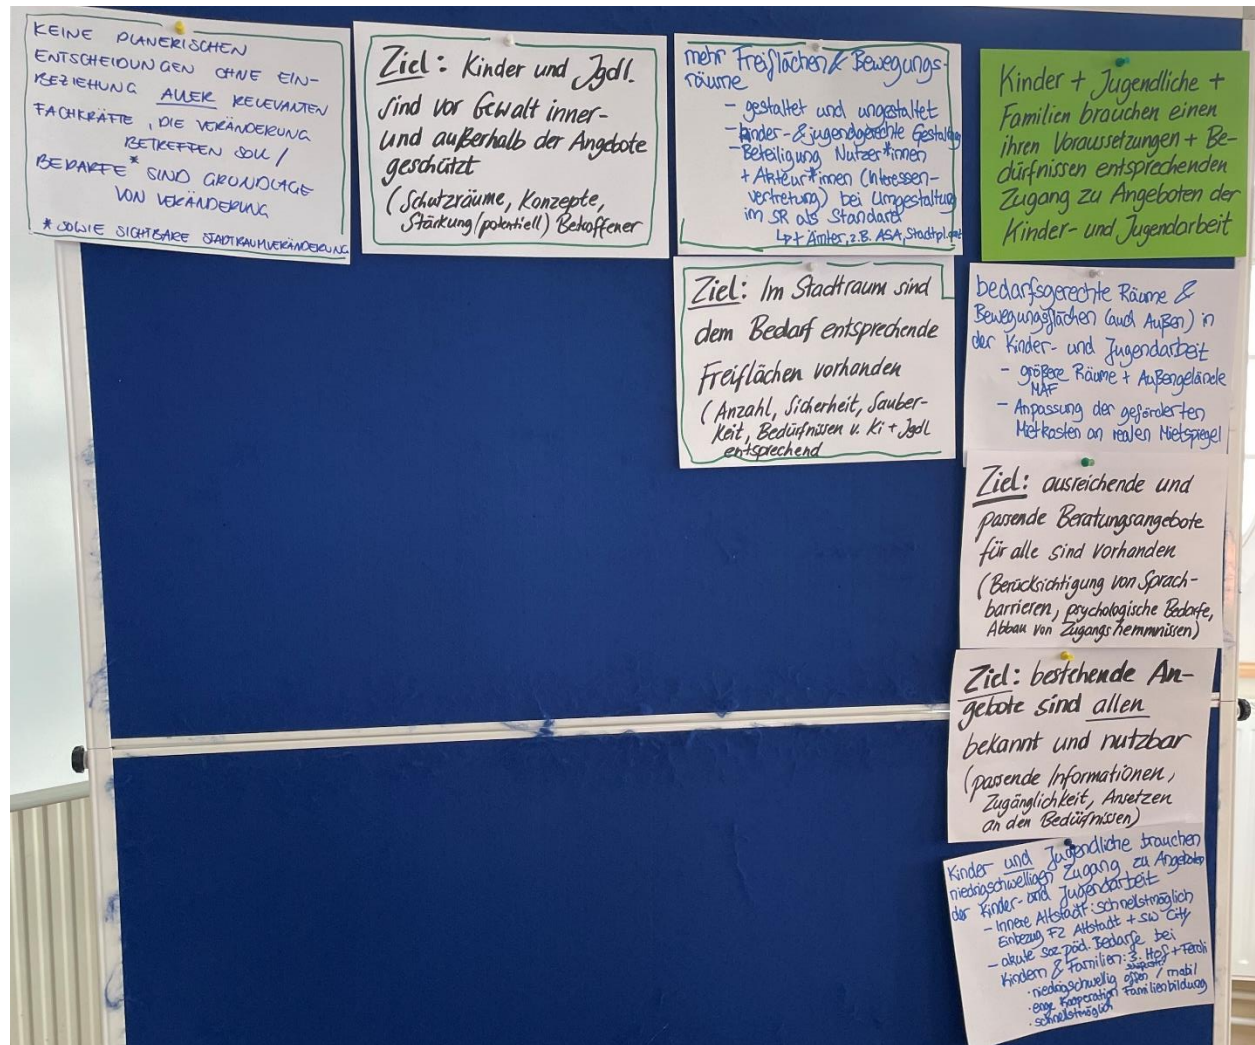 KEINE PLANERISCHEN
ENTSCHEIDUNGEN OHNE EIN-
BEZIEHUNG ALLER RELEVANTEN
FACHKRÄFTE, DIE VERÄNDERUNG
BETREFFEN SOLL /
BEDARFE* SIND GRUNDLAGE
VON VERÄNDERUNG
* SOWIE SICHTBARE STADTRAUMVERÄNDERUNG
Ziel: Kinder und Jgdl.
sind vor Gewalt inner-
und außerhalb der Angebote
geschützt
(Schutzräume, Konzepte,
Stärkung (potentiell) Betroffener
mehr Freiflächen & Bewegungs-
räume
- gestaltet und ungestaltet
- kinder- & jugendgerechte
- Beteiligung Nutzer*innen
+ Akteur*innen (Interessen-
vertretung) bei Umgestaltung
im SR als Standard
+ Ämter, z.B. ASA, Stadtpl.amt
Ziel: Im Stadtraum sind
dem Bedarf entsprechende
Freiflächen vorhanden
(Anzahl, Sicherheit, Sauber-
keit, Bedürfnissen v. Ki + Jgdl
entsprechend
Kinder + Jugendliche +
Familien brauchen einen
ihren Voraussetzungen + Be-
dürfnissen entsprechenden
Zugang zu Angeboten der
Kinder- und Jugendarbeit
bedarfsgerechte Räume &
Bewegungsflächen (auch Außen) in
der Kinder- und Jugendarbeit
- größere Räume + Außengelände
MAF
- Anpassung der geförderten
Mietkosten an realen Mietspiegel
Ziel: ausreichende und
passende Beratungsangebote
für alle sind vorhanden
(Berücksichtigung von Sprach-
barrieren, psychologische Bedarfe,
Abbau von Zugangshemmnissen)
Ziel: bestehende An-
gebote sind allen
bekannt und nutzbar
(passende Informationen,
Zugänglichkeit, Ansetzen
an den Bedürfnissen)
Kinder und Jugendliche brauchen
niedrigschwelligen Zugang zu Angeboten
der Kinder- und Jugendarbeit
- Innere Altstadt: schnellstmöglich
Einbezug FZ Altstadt + SW City
- akute soz.päd. Bedarfe bei
Kindern & Familien: 3. Hof +
· niedrigschwellig offen / mobil
· enge Kooperation Familienbildung
· schnellstmöglich